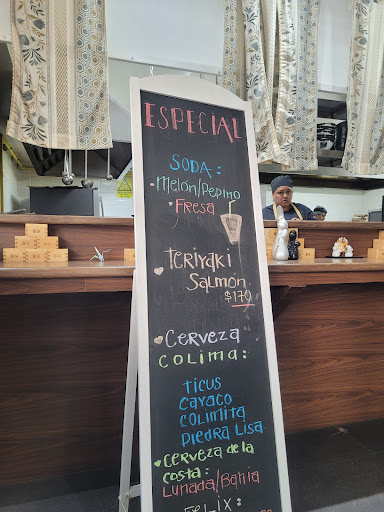 ESPECIAL
SODA:
• Melón/Pepino
• FRESA
TERIYAKI
SALMÓN
$170
CERVEZA
COLIMA:
TICUS
CAYACO
COLIMITA
PIEDRA LISA
• CERVEZA DE LA
COSTA:
LUNADA/BAHIA
FELIX: